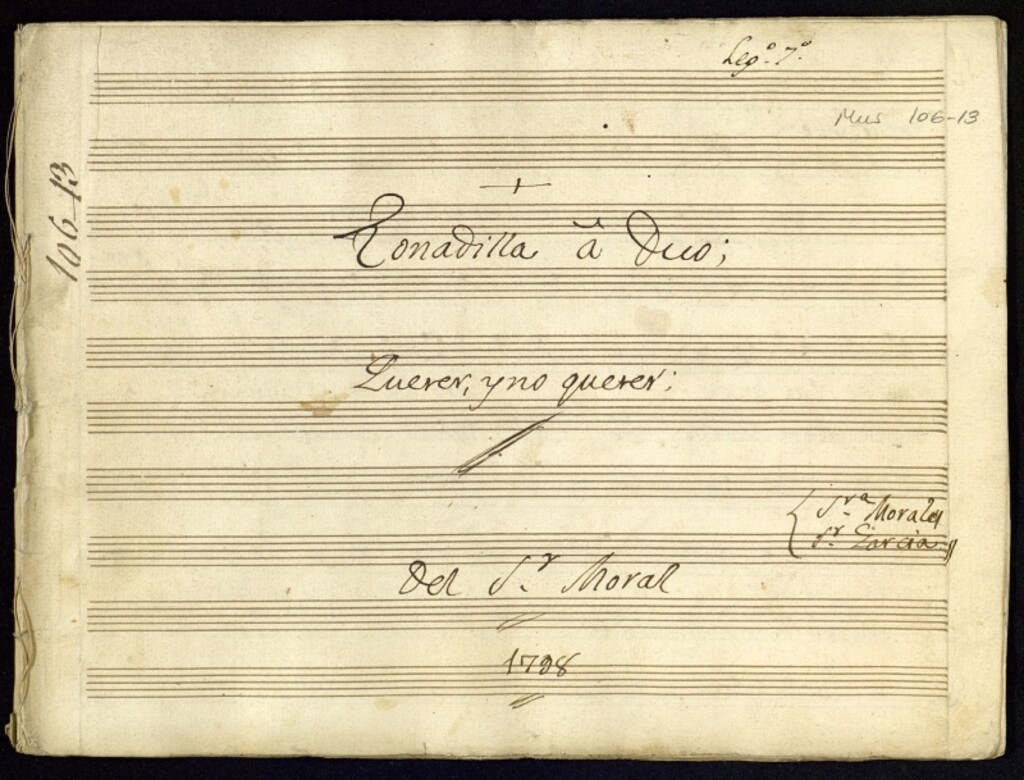 Leg.º 7.º
Mus 106-13
106-13
Tonadilla â Duo;
Querer, y no querer;
S.ra Morales
S.r Garcia.
Del S.r Moral
1798